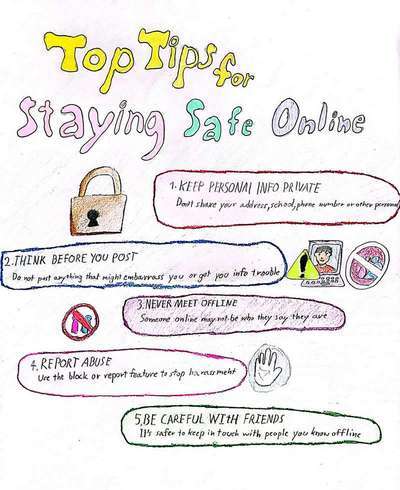 Top Tips for
Staying Safe Online
1. KEEP PERSONAL INFO PRIVATE
Don't share your address, school, phone number or other personal
2. THINK BEFORE YOU POST
Do not post anything that might embarrass you or get you into trouble
3. NEVER MEET OFFLINE
Someone online may not be who they say they are
4. REPORT ABUSE
Use the block or report feature to stop harassment
5. BE CAREFUL WITH FRIENDS
It's safer to keep in touch with people you know offline